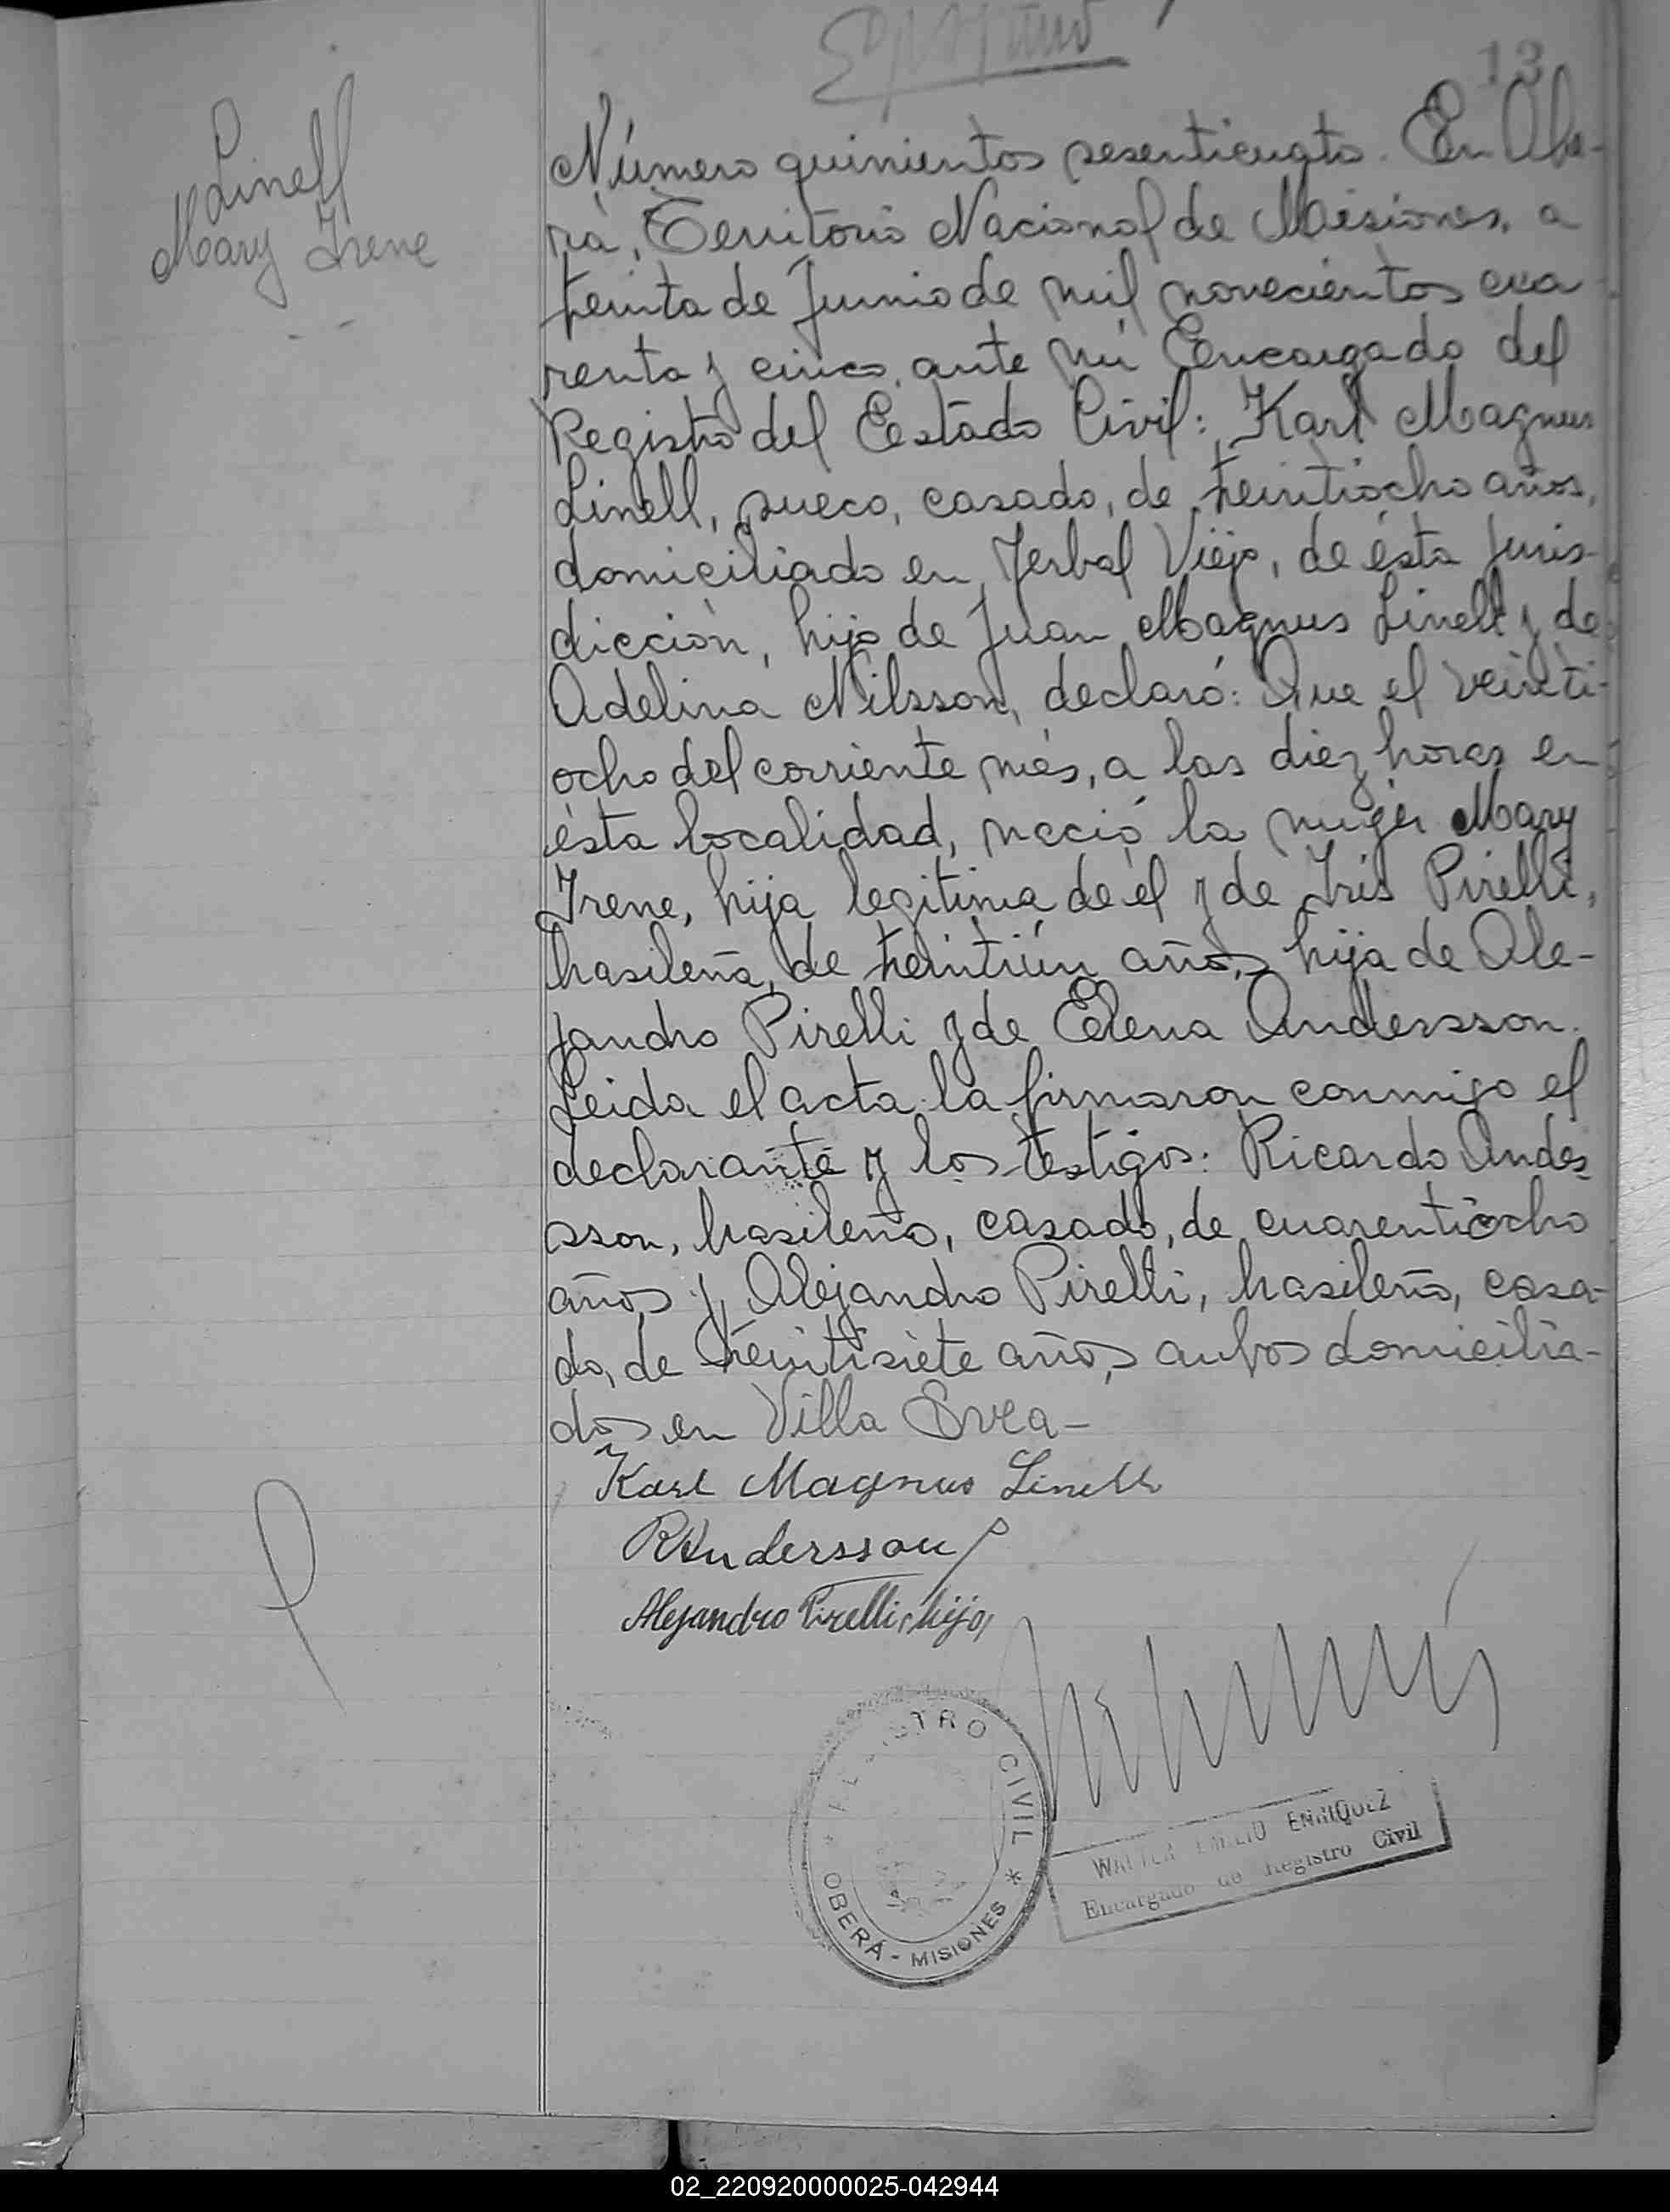 13
Linell
Mary Irene
Número quinientos sesenticuatro. En Obe-
rá, Territorio Nacional de Misiones, a
treinta de Junio de mil novecientos cua-
renta y cinco, ante mí Encargado del
Registro del Estado Civil: Karl Magnus
Linell, sueco, casado, de treintiocho años,
domiciliado en Yerbal Viejo, de ésta juris-
dicción, hijo de Juan Magnus Linell y de
Adelina Nilsson, declaró: Que el veinti-
ocho del corriente més, a las diez horas en
ésta localidad, nació la mujer Mary
Irene, hija legitima de él y de Iris Pirelli,
brasileña, de treintiún años, hija de Ale-
jandro Pirelli y de Elena Andersson.
Leida el acta la firmaron conmigo el
declarante y los testigos: Ricardo Andes
sson, brasileño, casado, de cuarentiocho
años y, Alejandro Pirelli, brasileño, casa-
do, de treintisiete años, ambos domicilia-
dos en Villa Svea-
Karl Magnus Linell
RAndersson
Alejandro Pirelli, hijo,
REGISTRO CIVIL
* OBERÁ - MISIONES *
WALTER EMILIO ENRIQUEZ
Encargado de Registro Civil
02_220920000025-042944